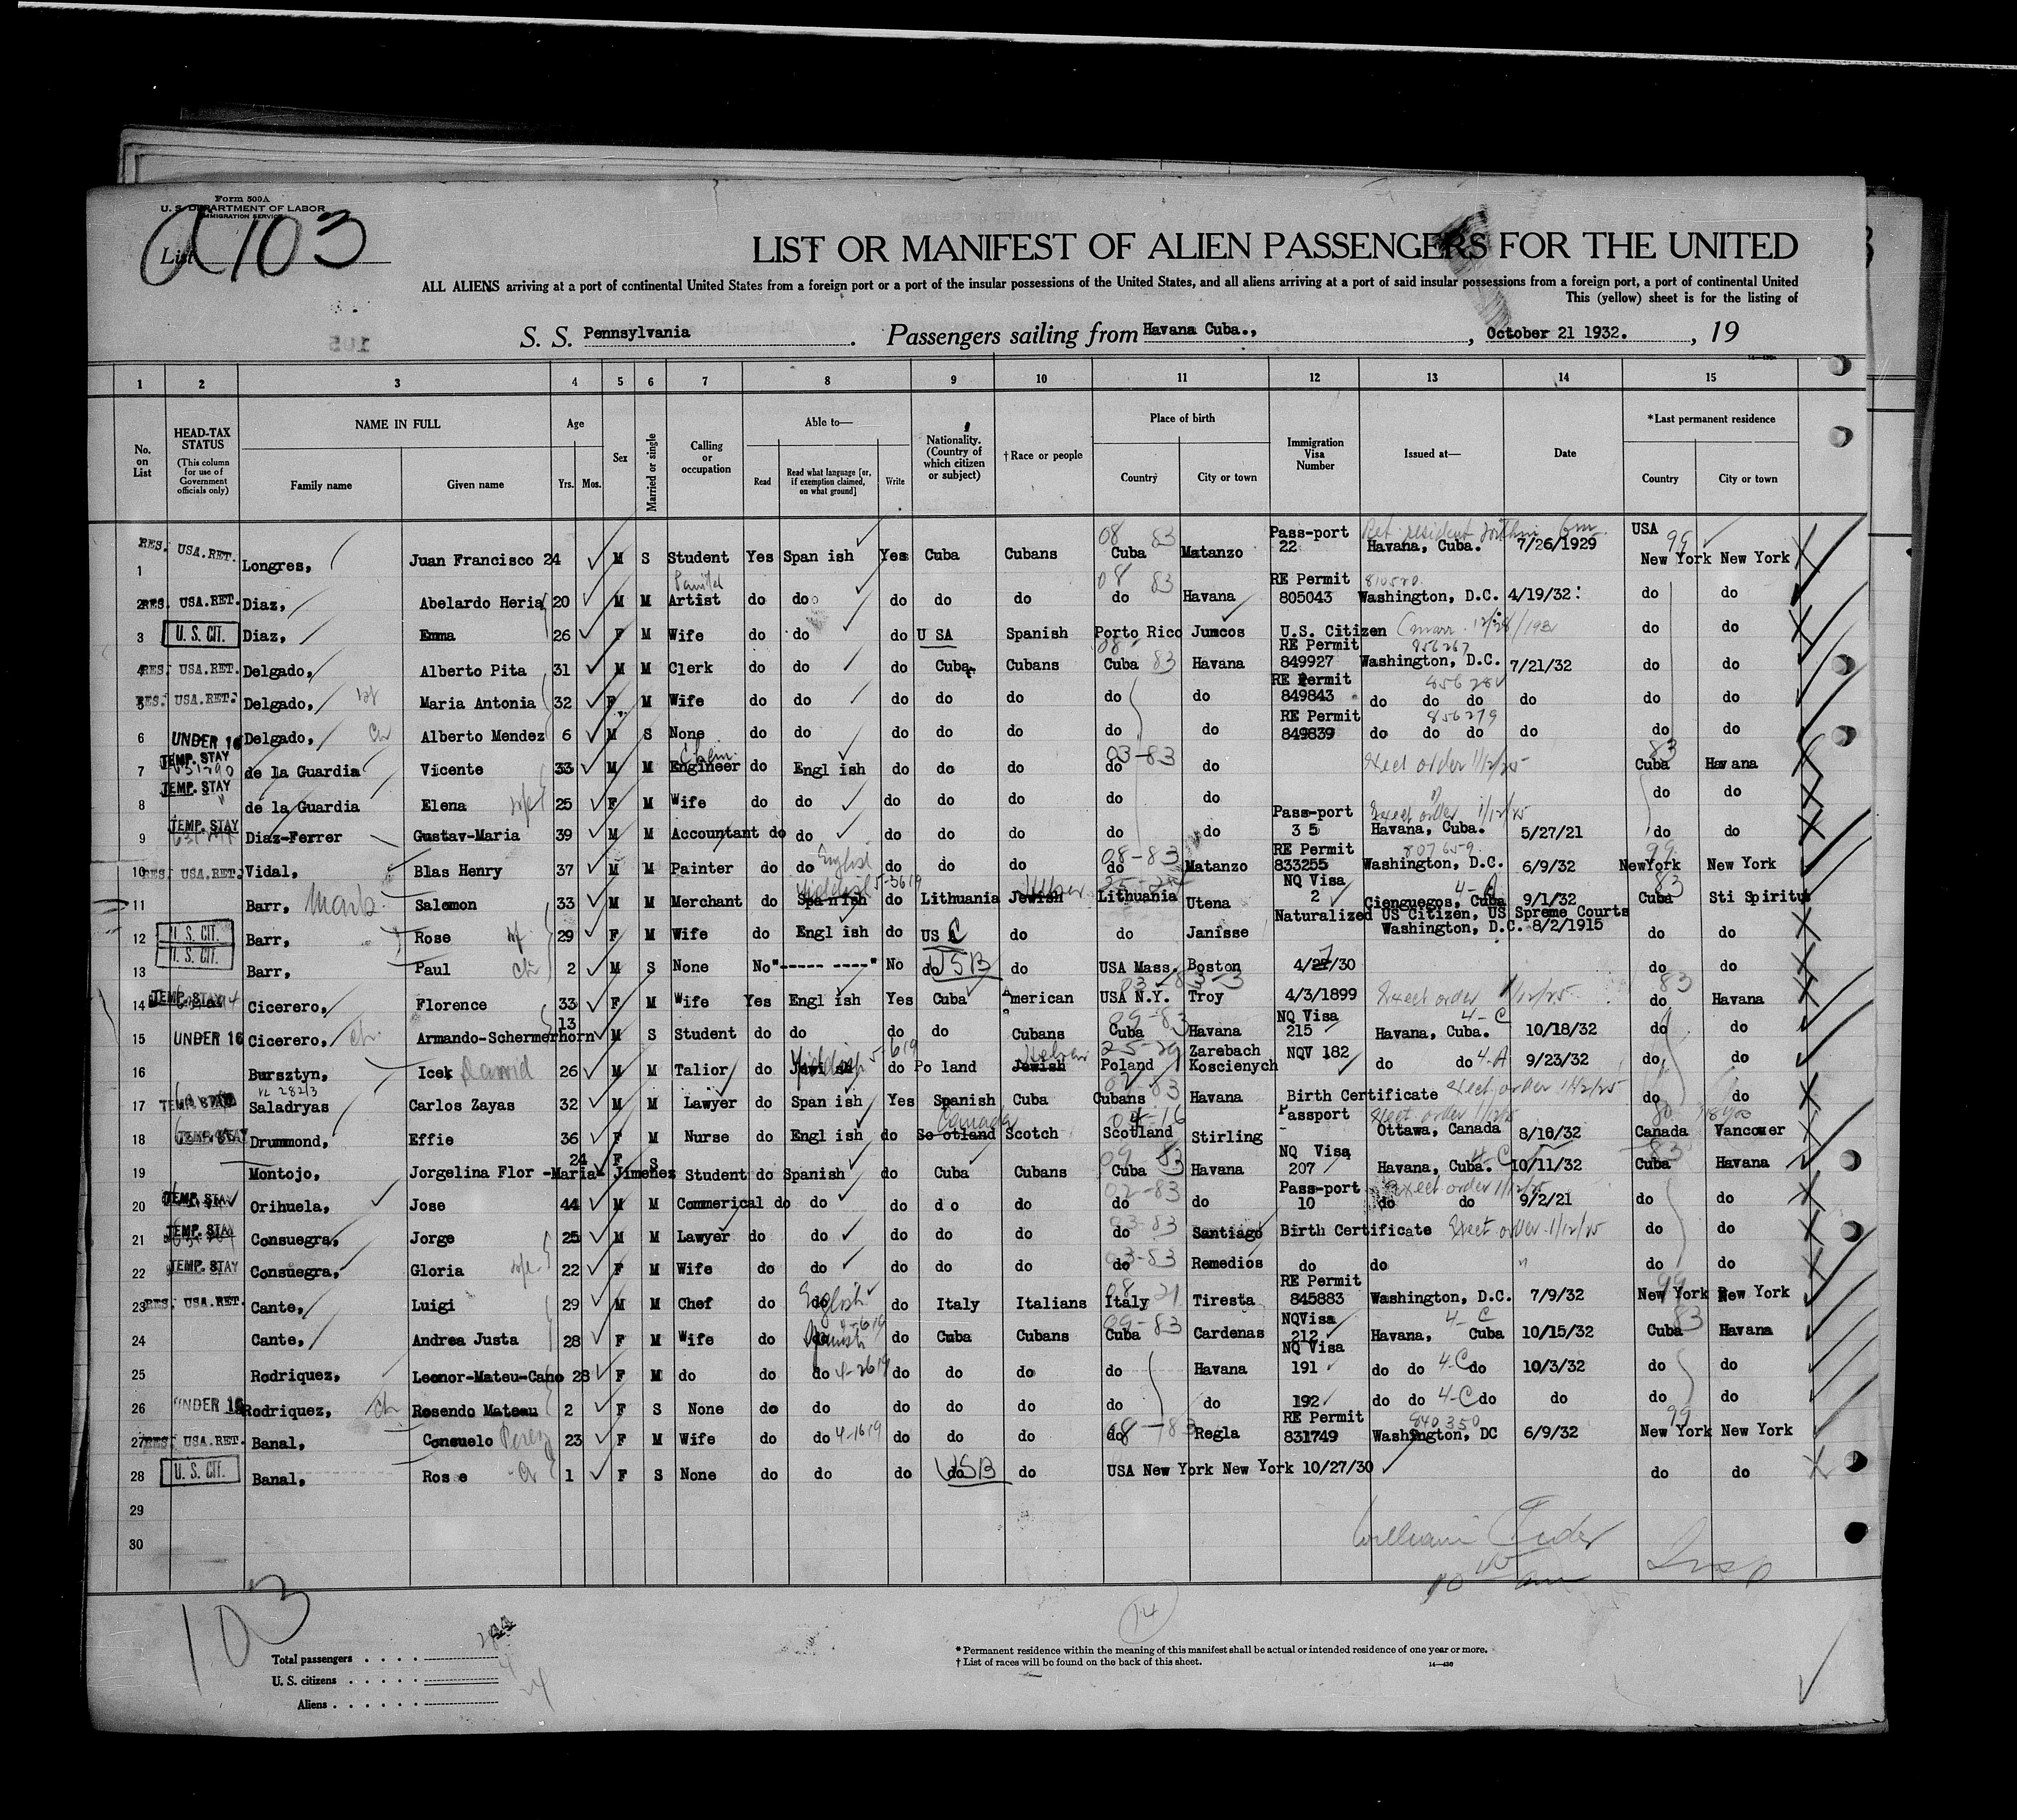 Form 500A
U. S. DEPARTMENT OF LABOR
IMMIGRATION SERVICE
List
a 103
LIST OR MANIFEST OF ALIEN PASSENGERS FOR THE UNITED
ALL ALIENS arriving at a port of continental United States from a foreign port or a port of the insular possessions of the United States, and all aliens arriving at a port of said insular possessions from a foreign port, a port of continental United
This (yellow) sheet is for the listing of
S. S. Pennsylvania . Passengers sailing from Havana Cuba., , October 21 1932. , 19
1 2 3 4 5 6 7 8 9 10 11 12 13 14 15
No. on List HEAD-TAX STATUS (This column for use of Government officials only) NAME IN FULL Family name Given name Age Yrs. Mos. Sex Married or single Calling or occupation Able to— Read Read what language [or, if exemption claimed, on what ground] Write Nationality. (Country of which citizen or subject) † Race or people Place of birth Country City or town Immigration Visa Number Issued at— Date * Last permanent residence Country City or town
Pass-port USA
1 RES. USA. RET. Longres, Juan Francisco 24 M S Student Yes Span ish Yes Cuba Cubans 08 83 Cuba Matanzo 22 Havana, Cuba. 7/26/1929 99 New York New York
RE Permit 810520
2 RES. USA. RET. Diaz, Abelardo Heria 20 M M Artist do do do do do 08 83 do Havana 805043 Washington, D.C. 4/19/32 do do
3 U. S. CIT. Diaz, Emma 26 F M Wife do do do U SA Spanish Porto Rico Juncos U.S. Citizen do do
RE Permit 856267
4 RES. USA. RET. Delgado, Alberto Pita 31 M M Clerk do do do Cuba Cubans Cuba 83 Havana 849927 Washington, D.C. 7/21/32 do do
RE Permit
5 RES. USA. RET. Delgado, Maria Antonia 32 F M Wife do do do do do do do 849843 do do do do do do
RE Permit 856279
6 UNDER 16 Delgado, Ch Alberto Mendez 6 M S None do do do do do do do 849839 do do do do do do
7 TEMP. STAY de la Guardia Vicente 33 M M Engineer do Engl ish do do do 03-83 do do Exect order 1/12/25 83 Cuba Havana
8 TEMP. STAY de la Guardia Elena 25 F M Wife do do do do do do do do do
Pass-port Exect order 1/12/25
9 TEMP. STAY Diaz-Ferrer Gustav-Maria 39 M M Accountant do do do do do do do 3 5 Havana, Cuba. 5/27/21 do do
RE Permit 807659
10 RES. USA. RET. Vidal, Blas Henry 37 M M Painter do do English do do do 08-83 do Matanzo 833255 Washington, D.C. 6/9/32 99 NewYork New York
NQ Visa 4-A
11 Barr, Salomon 33 M M Merchant do Spanish Yiddish do Lithuania Jewish Hebrew Lithuania Utena 2 Cienguegos, Cuba 9/1/32 83 Cuba Sti Spiritus
Naturalized US Citizen, US Spreme Courts
12 U. S. CIT. Barr, Rose 29 F M Wife do Engl ish do US C do do Janisse Washington, D.C. 8/2/1915 do do
13 U. S. CIT. Barr, Paul Ch 2 M S None No "----- ----" No do USB do USA Mass. Boston 4/27/30 do do
14 TEMP. STAY Cicerero, Florence 33 F M Wife Yes Engl ish Yes Cuba American 03-83-3 USA N.Y. Troy 4/3/1899 Exect order 1/12/25 83 do Havana
NQ Visa 4-C
15 UNDER 16 Cicerero, ch. Armando-Schermerhorn 13 M S Student do do do do Cubans 09-83 Cuba Havana 215 Havana, Cuba. 10/18/32 do do
16 Bursztyn, Icek David 26 M M Talior do Jewish Yiddish 5-619 do Po land Jewish Hebrew 25-29 Poland Zarebach Koscienych NQV 182 do do 4-A 9/23/32 do, do
17 TEMP. STAY Saladryas Carlos Zayas 32 M M Lawyer do Span ish Yes Spanish Cuba Cubans Havana Birth Certificate Exect order 1/12/25 do do
Passport Exect order 1/12/25
18 TEMP. STAY Drummond, Effie 36 F M Nurse do Engl ish do Scotland Canada Scotch 04-16 Scotland Stirling Ottawa, Canada 8/10/32 Canada Vancouver
NQ Visa 4-C
19 Montojo, Jorgelina Flor -Maria- Jimenez 24 F S Student do Spanish do Cuba Cubans 09-83 Cuba Havana 207 Havana, Cuba. 10/11/32 83 Cuba Havana
Pass-port Exect order 1/12/25
20 TEMP. STAY Orihuela, Jose 44 M M Commerical do do do d o do 02-83 do do 10 do do 9/2/21 do do
21 TEMP. STAY Consuegra, Jorge 25 M M Lawyer do do do do do 03-83 do Santiago Birth Certificate Exect order 1/12/25 do do
22 TEMP. STAY Consuegra, Gloria 22 F M Wife do do do do do 03-83 do Remedios do do " do do
RE Permit
23 RES. USA. RET. Cante, Luigi 29 M M Chef do do English do Italy Italians 08 21 Italy Tiresta 845883 Washington, D.C. 7/9/32 99 New York New York
NQVisa 4-C
24 Cante, Andrea Justa 28 F M Wife do do Spanish do Cuba Cubans 09-83 Cuba Cardenas 212 Havana, Cuba 10/15/32 83 Cuba Havana
NQ Visa
25 Rodriquez, Leonor-Mateu-Cano 28 F M do do do 4-2619 do do do do Havana 191 do do 4-C do 10/3/32 do do
26 UNDER 16 Rodriquez, ch Rosendo Mateau 2 F S None do do do do do do do 192 do do 4-C do do do do
RE Permit 840350
27 RES. USA. RET. Banal, Consuelo Perez 23 F M Wife do do 4-1619 do do do 08-83 do Regla 831749 Washington, DC 6/9/32 99 New York New York
28 U. S. CIT. Banal, Ros e Ch 1 F S None do do do do USB do USA New York New York 10/27/30 do do
29
30
William
Insp
103
14
Total passengers . . . . 28
U. S. citizens . . . . . 4
Aliens . . . . . . 24
* Permanent residence within the meaning of this manifest shall be actual or intended residence of one year or more.
† List of races will be found on the back of this sheet.
14—430